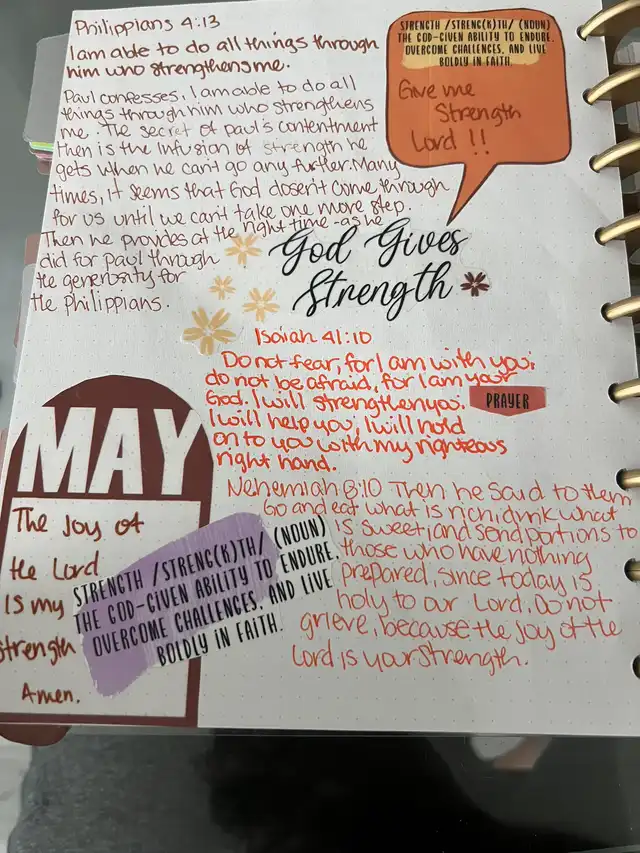 Philippians 4:13
I am able to do all things through
him who strengthens me.
Paul confesses, I am able to do all
things through him who strengthens
me. The secret of Paul's contentment
then is the infusion of strength he
gets when he can't go any further. Many
times, it seems that God dosen't come through
for us until we can't take one more step.
Then he provides at the right time - as he
did for Paul through
the generosity for
the Philippians.
STRENGTH /STRENG(K)TH/ (NOUN)
THE GOD-GIVEN ABILITY TO ENDURE,
OVERCOME CHALLENGES, AND LIVE
BOLDLY IN FAITH.
Give me
Strength
Lord !!
God Gives
Strength
Isaiah 41:10
Do not fear, for I am with you;
do not be afraid, for I am your
God. I will strengthen you.
I will help you, I will hold
on to you with my righteous
right hand.
PRAYER
Nehemiah 8:10 Then he said to them
Go and eat what is rich, drink what
is sweet, and send portions to
those who have nothing
prepared, since today is
holy to our Lord. Do not
grieve, because the joy of the
Lord is your strength.
MAY
The Joy of
the Lord
Is my
Strength
Amen.
STRENGTH /STRENG(K)TH/ (NOUN)
THE GOD-GIVEN ABILITY TO ENDURE,
OVERCOME CHALLENGES, AND LIVE
BOLDLY IN FAITH.